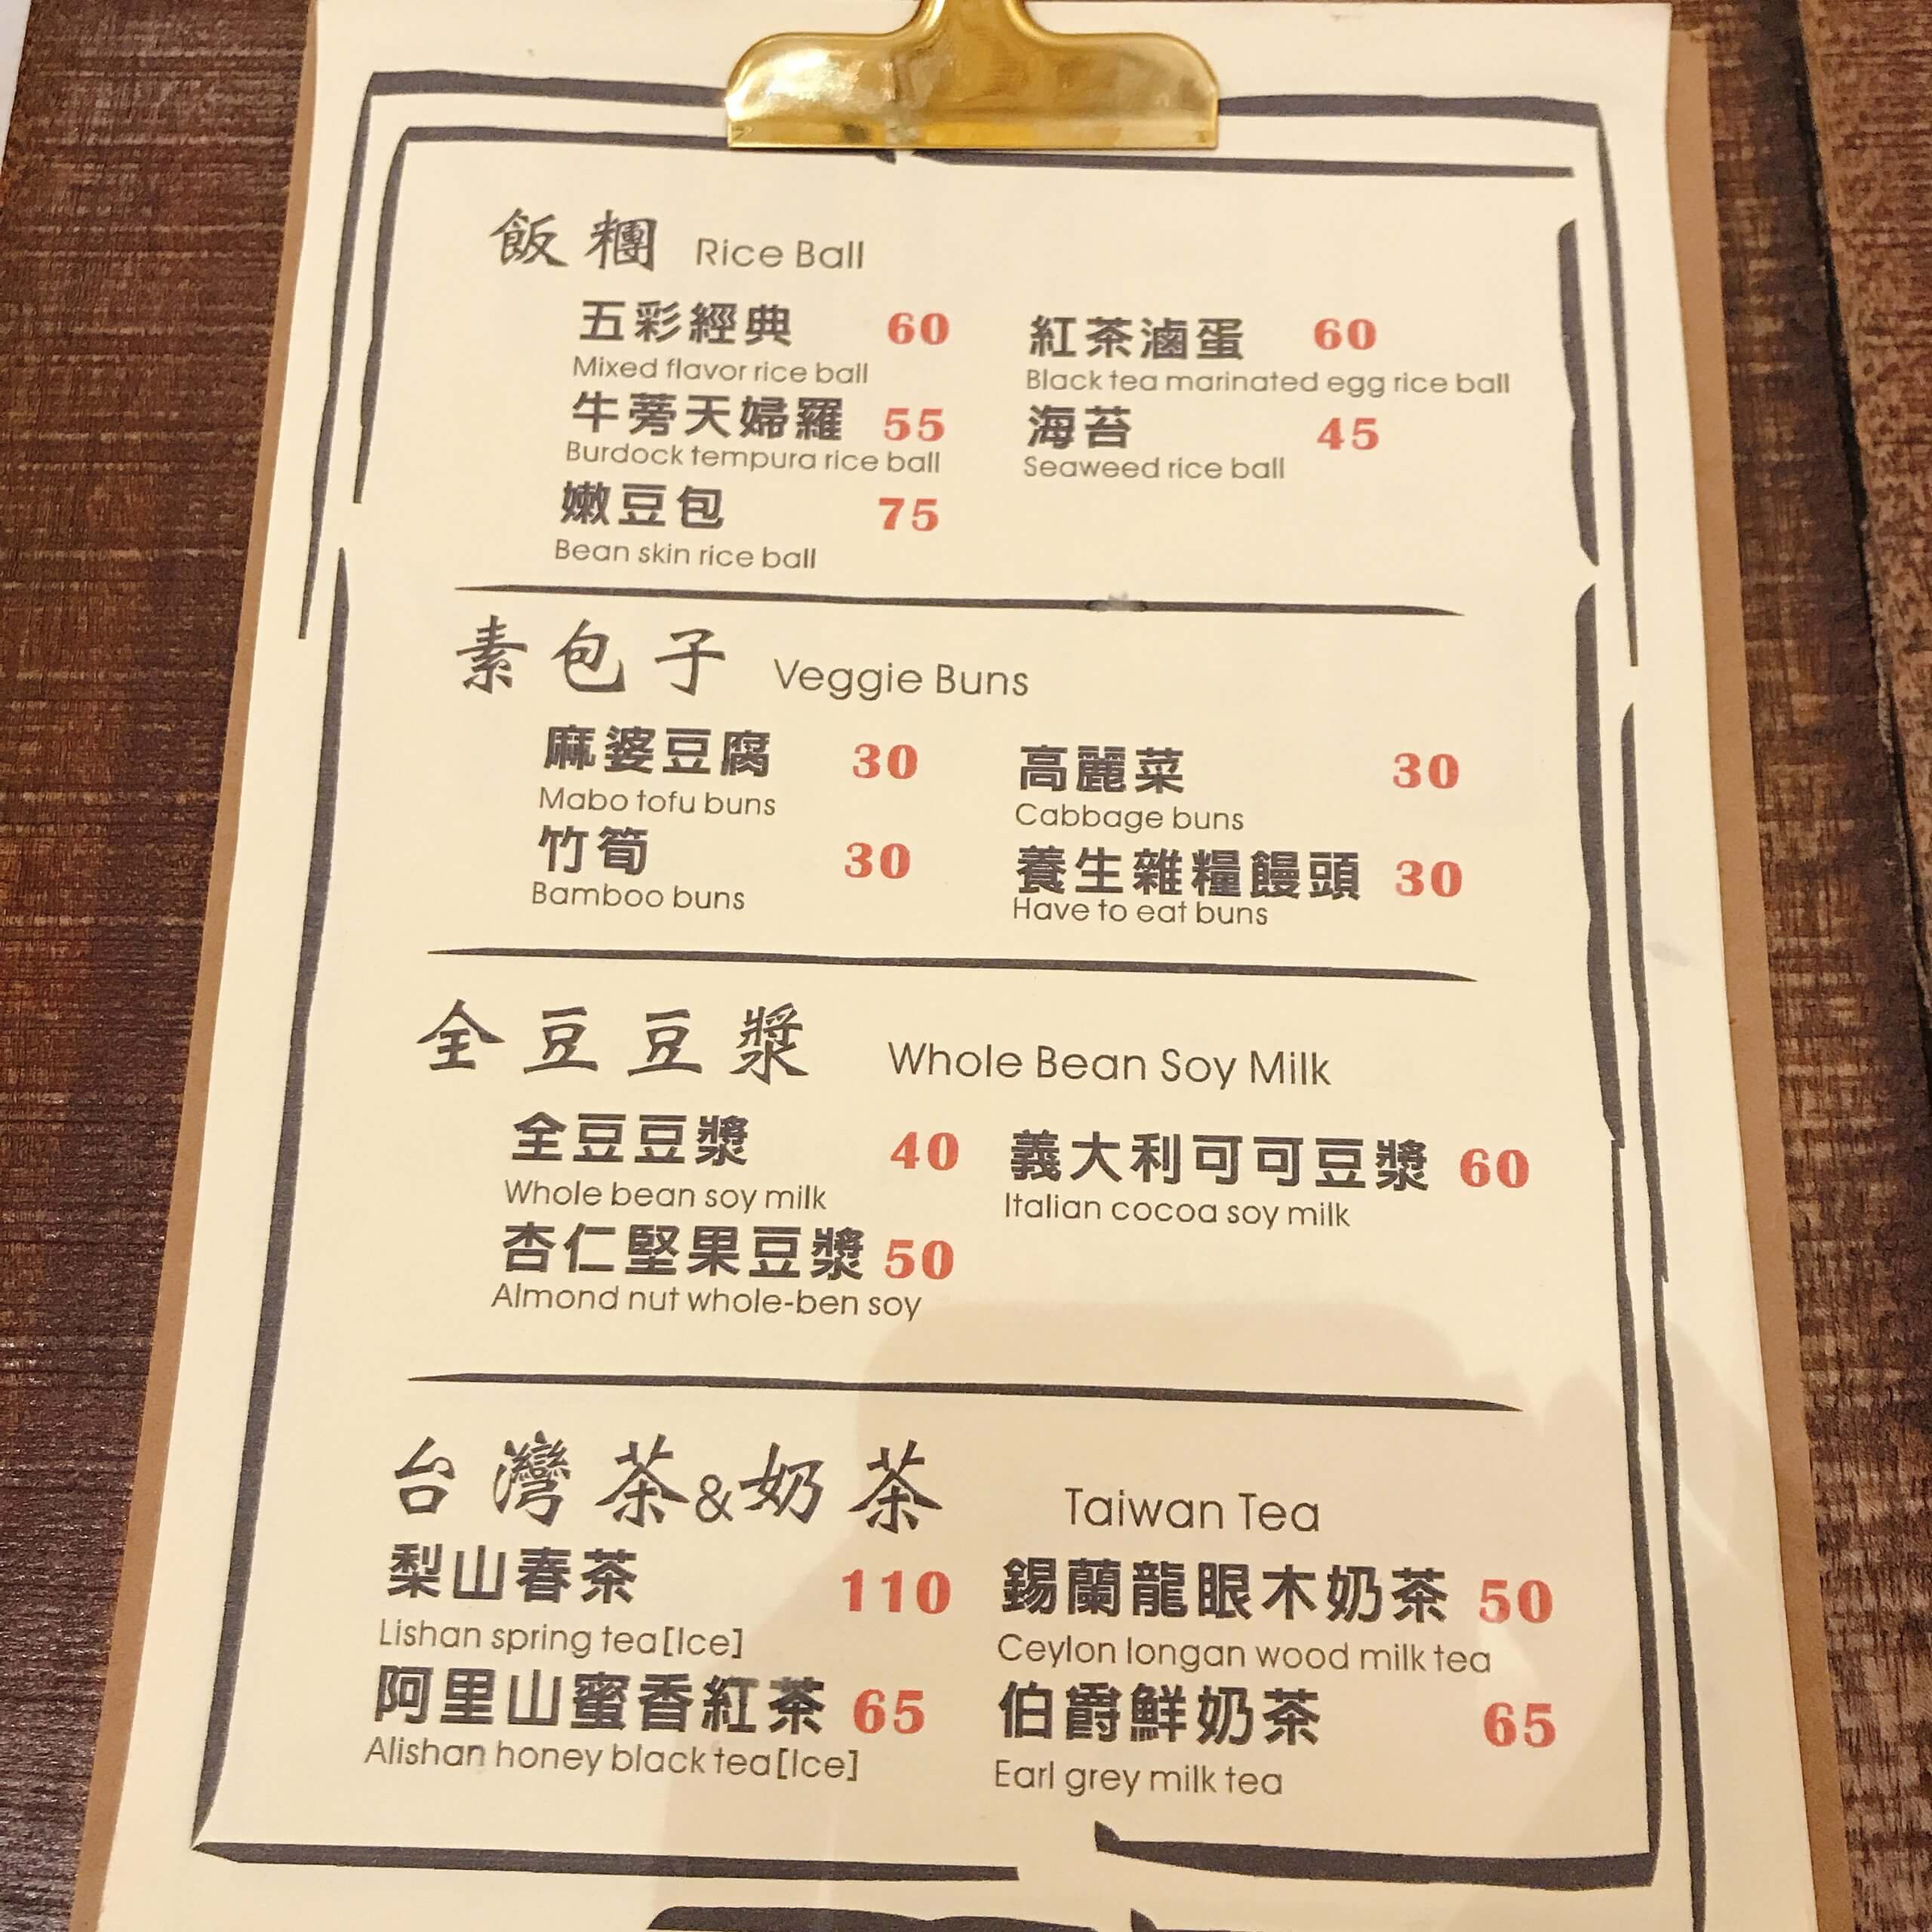 飯糰 Rice Ball
五彩經典 60 紅茶滷蛋 60
Mixed flavor rice ball Black tea marinated egg rice ball
牛蒡天婦羅 55 海苔 45
Burdock tempura rice ball Seaweed rice ball
嫩豆包 75
Bean skin rice ball
素包子 Veggie Buns
麻婆豆腐 30 高麗菜 30
Mabo tofu buns Cabbage buns
竹筍 30 養生雜糧饅頭 30
Bamboo buns Have to eat buns
全豆豆漿 Whole Bean Soy Milk
全豆豆漿 40 義大利可可豆漿 60
Whole bean soy milk Italian cocoa soy milk
杏仁堅果豆漿 50
Almond nut whole-ben soy
台灣茶&奶茶 Taiwan Tea
梨山春茶 110 錫蘭龍眼木奶茶 50
Lishan spring tea[Ice] Ceylon longan wood milk tea
阿里山蜜香紅茶 65 伯爵鮮奶茶 65
Alishan honey black tea[Ice] Earl grey milk tea